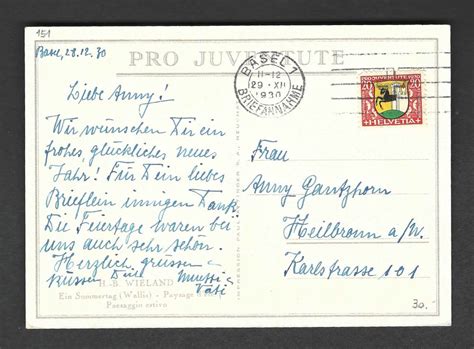 151
Basel, 28.12.30
PRO JUVENTUTE
BASEL 1
11-12
29.XII
1930
BRIEFANNAHME
PRO JUVENTUTE 1930
20 20
HELVETIA
Liebe Anny!
Wir wünschen Dir ein
frohes, glückliches neues
Jahr! Für Dein liebes
Brieflein innigen Dank.
Die Feiertage waren bei
uns auch sehr schön.
Herzlich grüssen +
küssen Dich Mutti +
Vati
H. B. WIELAND
Ein Sommertag (Wallis) - Paysage
Paesaggio estivo
Frau
Anny Gantzhorn
Heilbronn a/N.
Karlstrasse 101
30.-